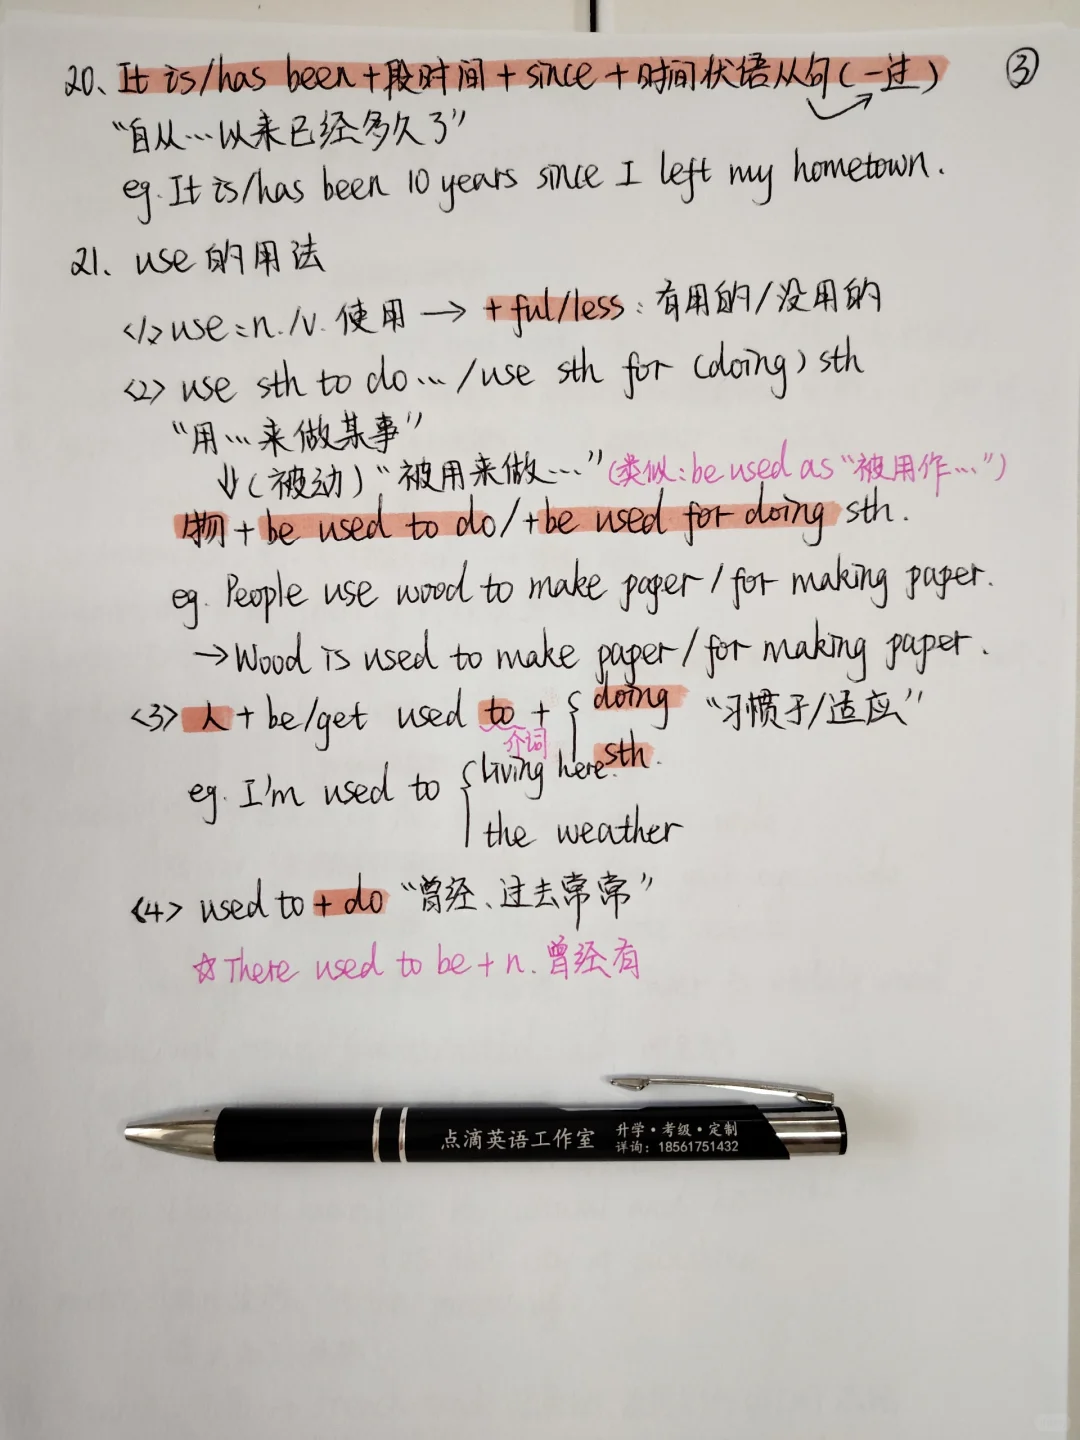 20、It is/has been+段时间+since+时间状语从句(一过) ③
“自从…以来已经多久了”
eg. It is/has been 10 years since I left my hometown.
21、use的用法
<1> use:n./v. 使用 → +ful/less:有用的/没用的
<2> use sth to do… /use sth for (doing) sth
“用…来做某事”
↓(被动)“被用来做…”(类似:be used as“被用作…”)
物+be used to do/+be used for doing sth.
eg. People use wood to make paper/for making paper.
→Wood is used to make paper/for making paper.
<3> 人+be/get used to + { doing “习惯于/适应”
介词 sth.
eg. I'm used to { living here.
the weather
<4> used to + do “曾经、过去常常”
☆There used to be+n. 曾经有
点滴英语工作室 升学·考级·定制
详询:18561751432